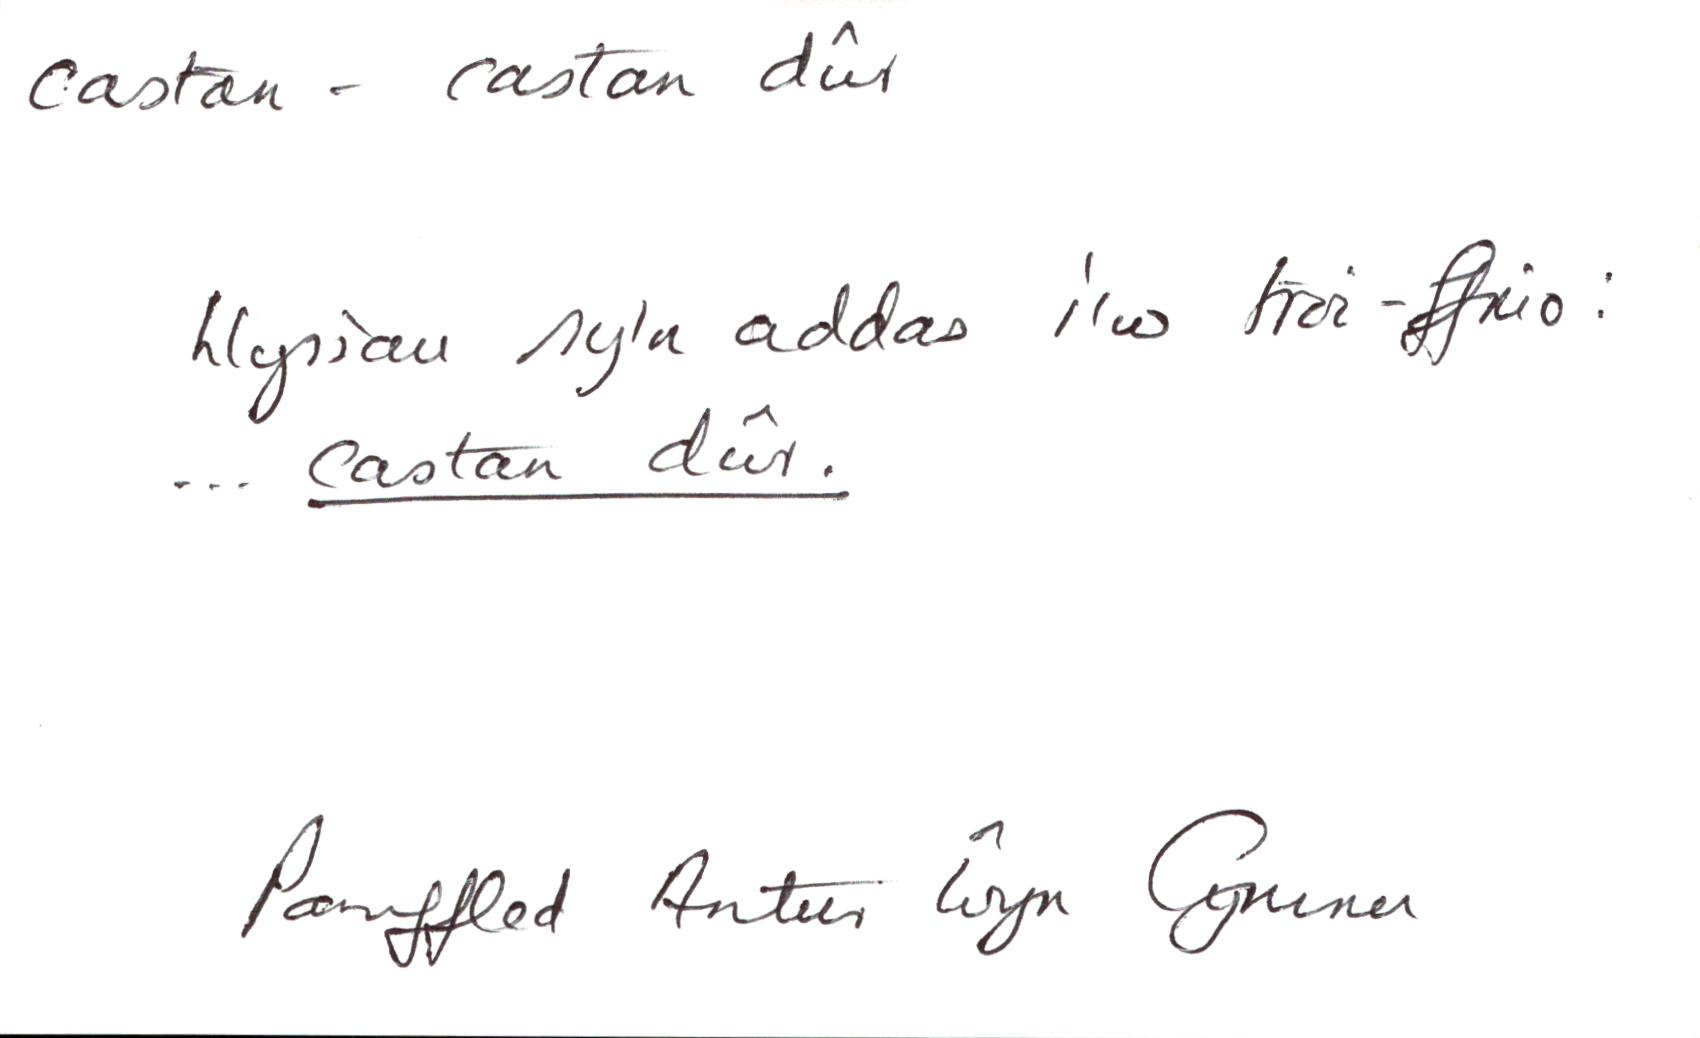 castan - castan dûr
llysiau sy'n addas i'w troi-ffrio:
... castan dûr.
Pamffled Antur Ŵyn Cymru